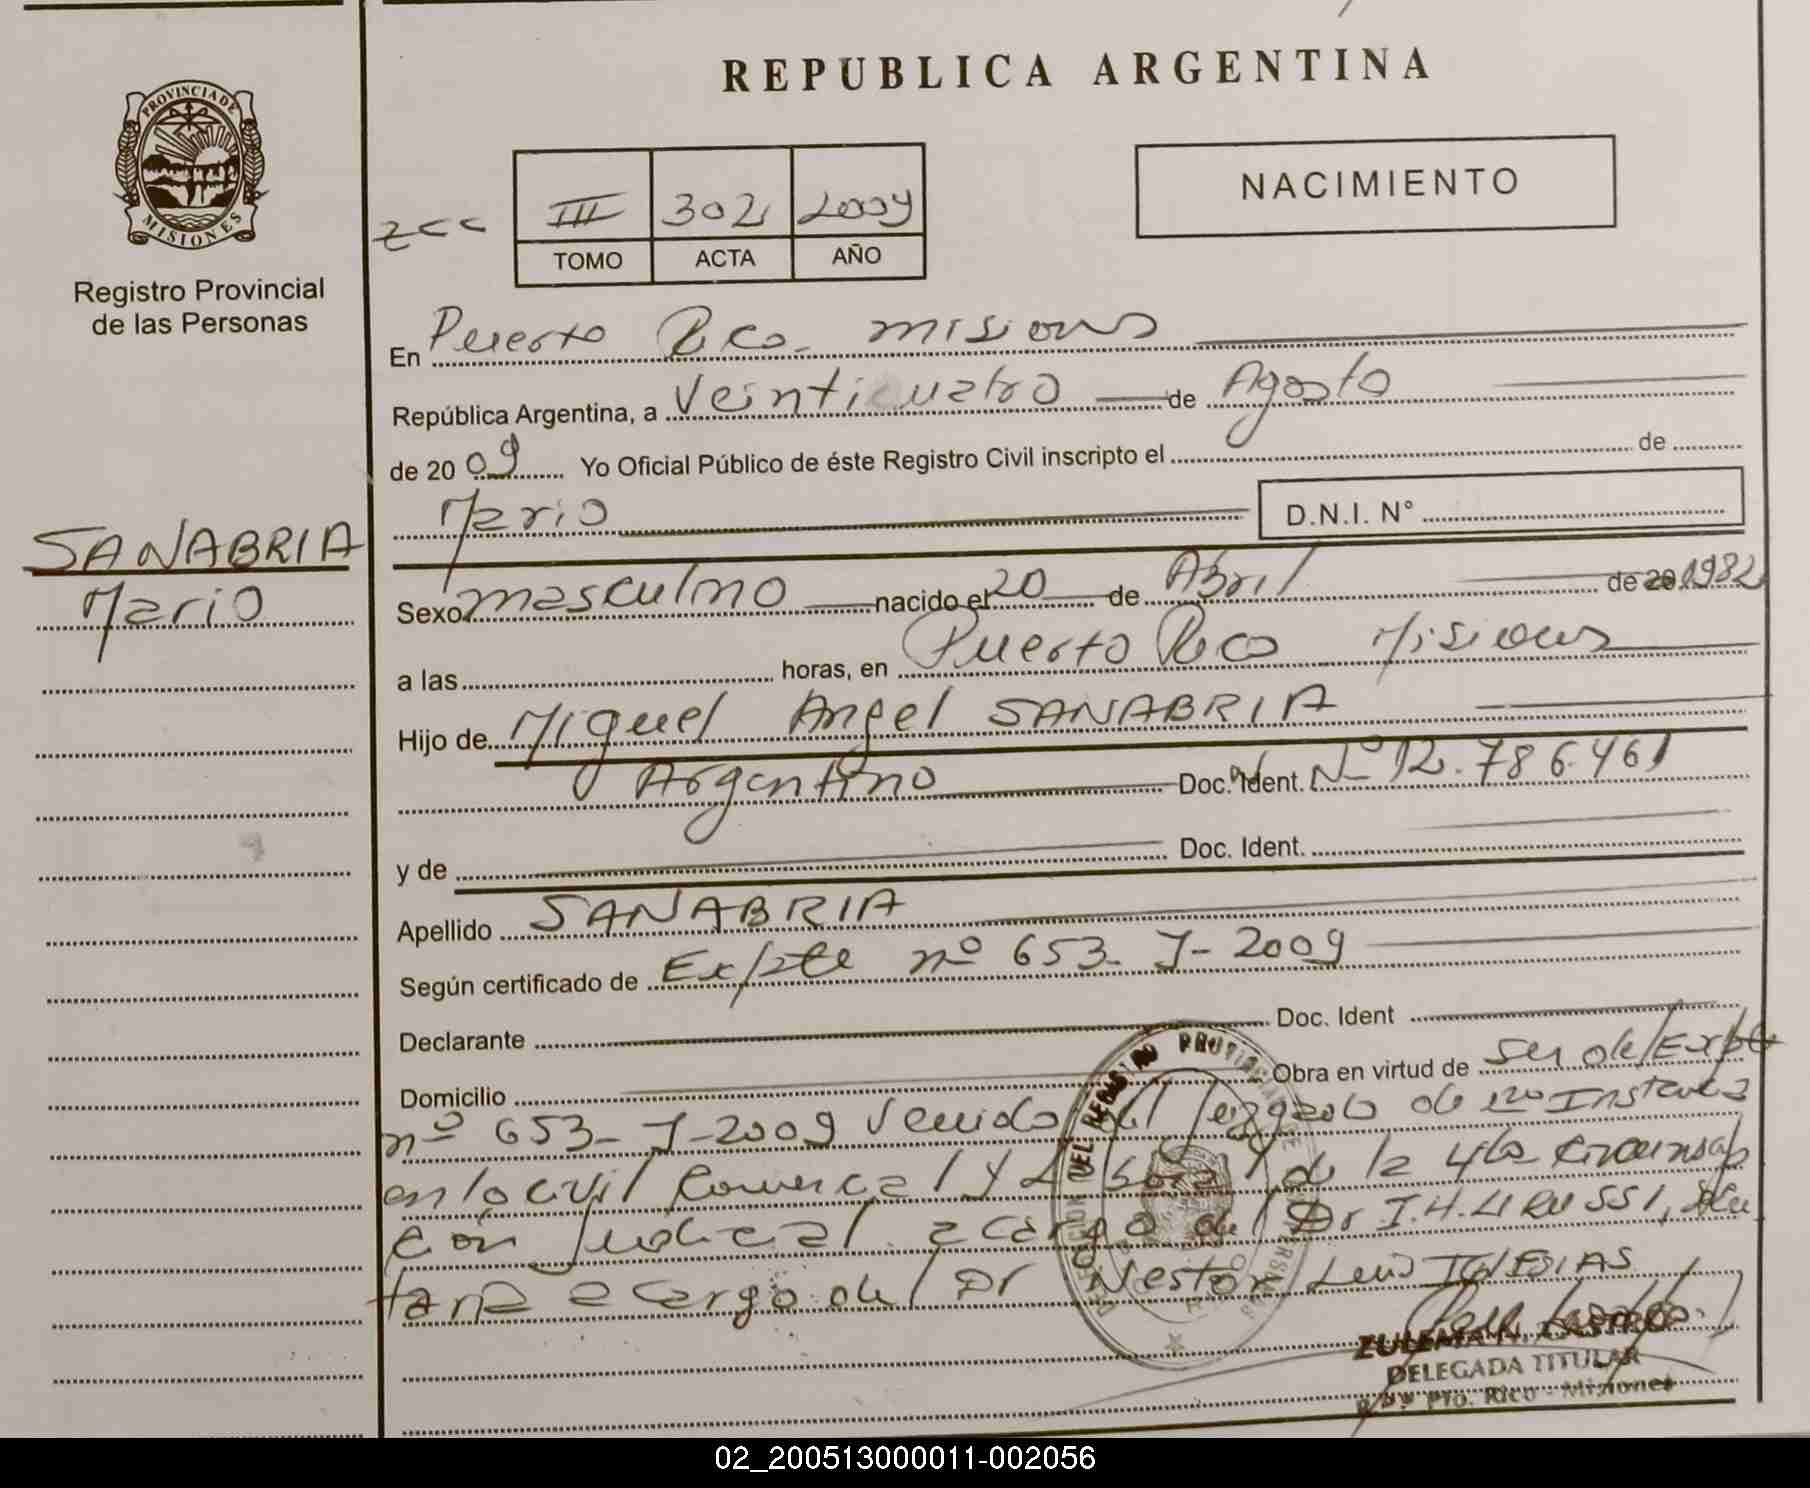 REPUBLICA ARGENTINA
PROVINCIA DE
MISIONES
Registro Provincial
de las Personas
NACIMIENTO
III 302 2009
TOMO ACTA AÑO
En Puerto Rico. misiones
República Argentina, a Veinticuatro de Agosto
de 20 09 Yo Oficial Público de éste Registro Civil inscripto el de
Mario D.N.I. N°
SANABRIA
Mario
Sexo masculino nacido el 20 de Abril de 20 1982
a las horas, en Puerto Rico Misiones
Hijo de Miguel Angel SANABRIA
Argentino Doc. Ident. Nº 12.786.461
y de Doc. Ident.
Apellido SANABRIA
Según certificado de Expte nº 653- J-2009
Declarante Doc. Ident
Domicilio Obra en virtud de ser del Expte
nº 653-J-2009 venido del Juzgado de 1ra Instancia
en lo civil Comercial y Laboral de la 4ta Circunscrip
ción Judicial a cargo del Dr I.H.
taria a cargo del Dr Nestor Luis IGLESIAS
DELEGADA TITULAR
Pto. Rico - Misiones
02_200513000011-002056